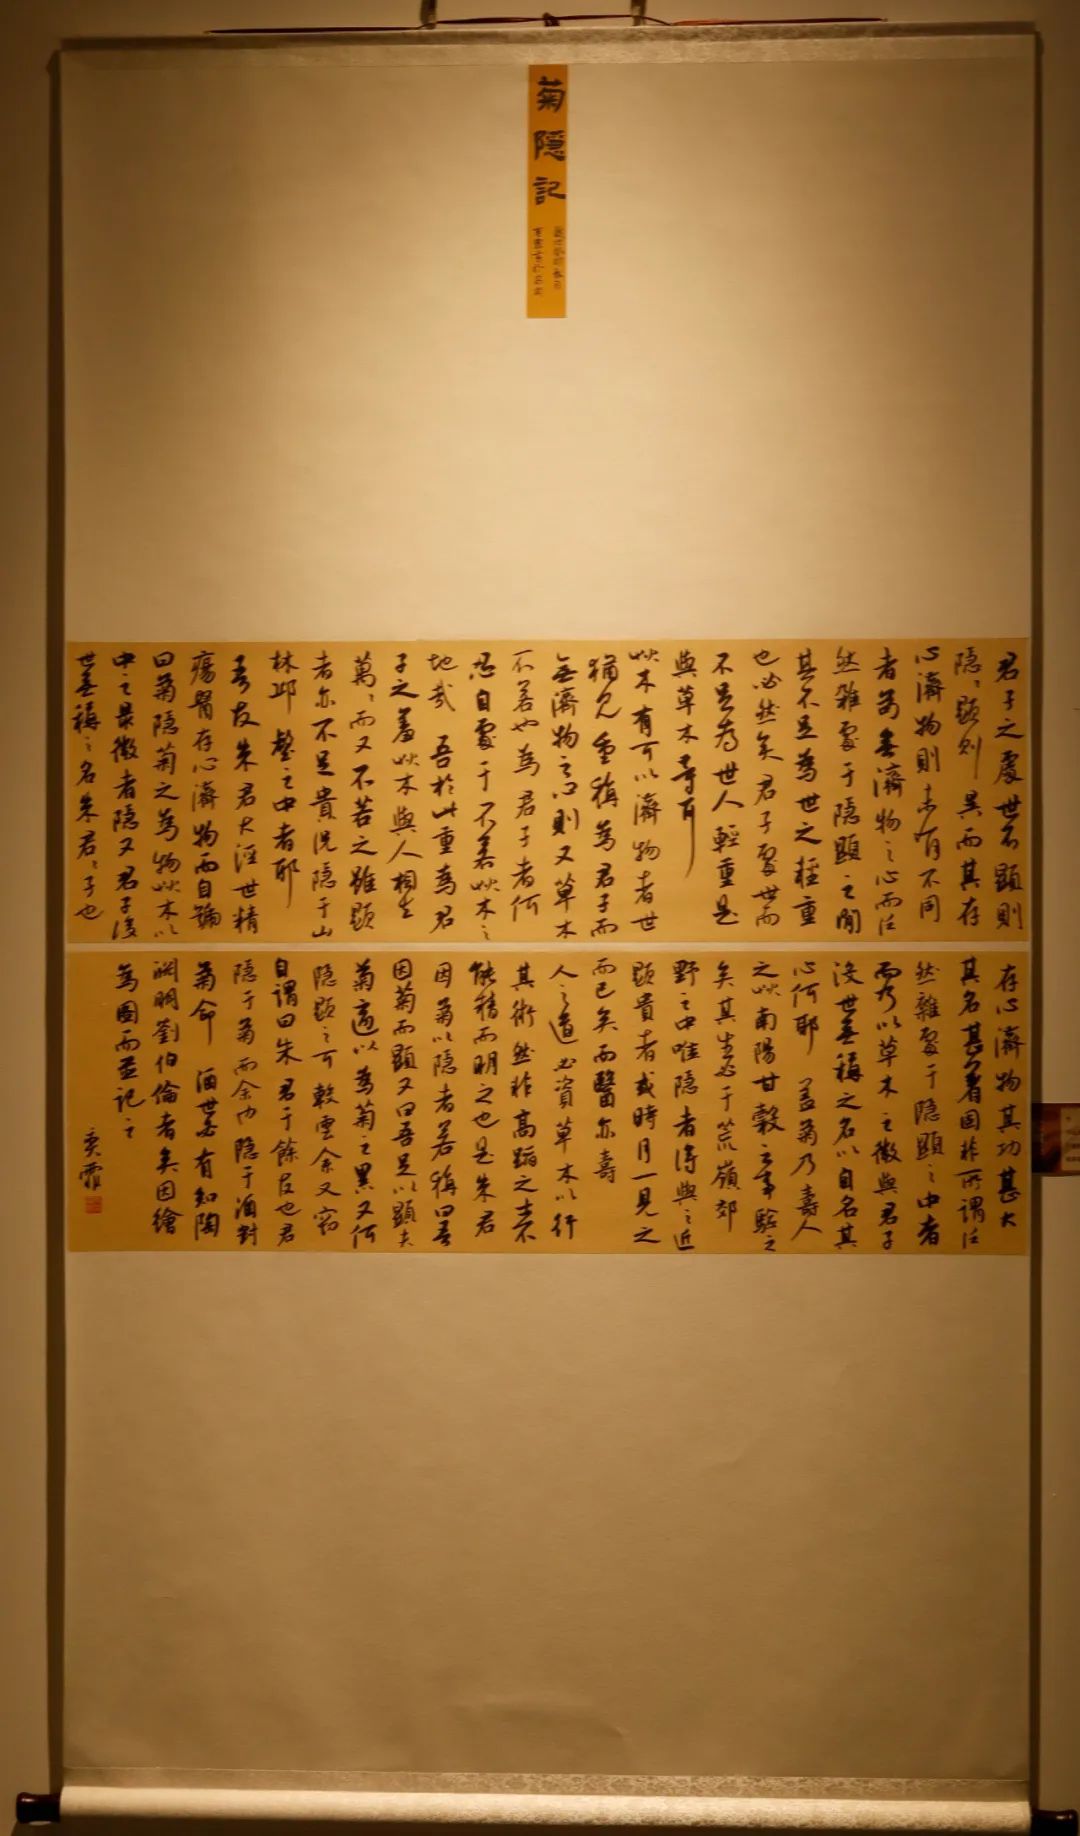 菊隱記
君子之處世不顯則
隱隱顯則異而其存
心濟物則未有不同
者苟無濟物之心而泛
然雜處于隱顯之間
其不足為世之輕重
也必然矣君子處世而
不足為世人輕重是
與草木等耳
草木有可以濟物者世
猶見重稱為君子而
無濟物之心則又草木
不若也為君子者何
忍自處于不若草木之
地哉 吾於此重為君
子之羞草木與人相去
萬萬而又不若之雖顯
者亦不足貴況隱于山
林邱壑之中者耶
吾友朱君大涇世精
瘍醫存心濟物而自號
曰菊隱菊之為物草木
中之最微者隱又君子沒
世無稱之名朱君君子也
存心濟物其功甚大
其名甚著固非所謂泛
然雜處于隱顯之中者
而乃以草木之微與君子
沒世無稱之名以自名其
心何耶 蓋菊乃壽人
之草南陽甘穀之事驗之
矣其生必于荒嶺郊
野之中唯隱者得與之近
顯貴者或時月一見之
而已矣而醫亦壽
人之道必資草木以行
其術然非高蹈之士不
能精而明之也是朱君
因菊以隱者若稱曰吾
因菊而顯又曰吾足以顯夫
菊適以為菊之累又何
隱顯之可較云余又竊
自謂曰朱君于余友也君
隱于菊而余也隱于酒對
菊命 酒世必有知陶
淵明劉伯倫者矣因繪
為圖而並記之
奕霏